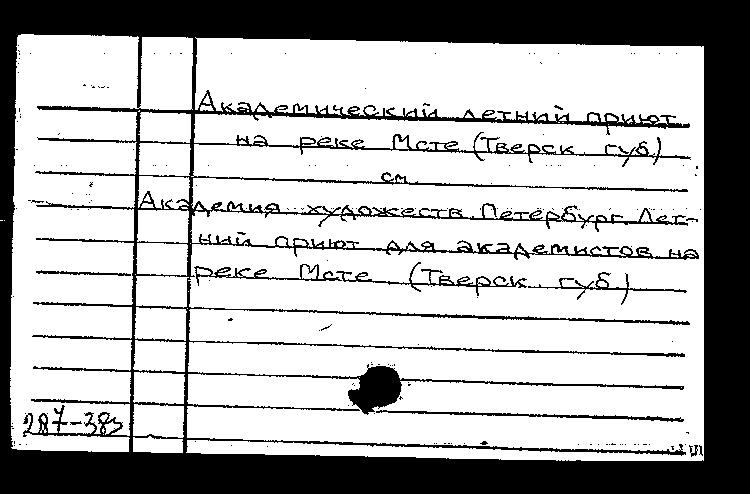 Академический летний приют
на реке Мсте (Тверск губ.)
см.
Академия художеств. Петербург. Лет-
ний приют для академистов на
реке Мсте (Тверск. губ.)
287-383